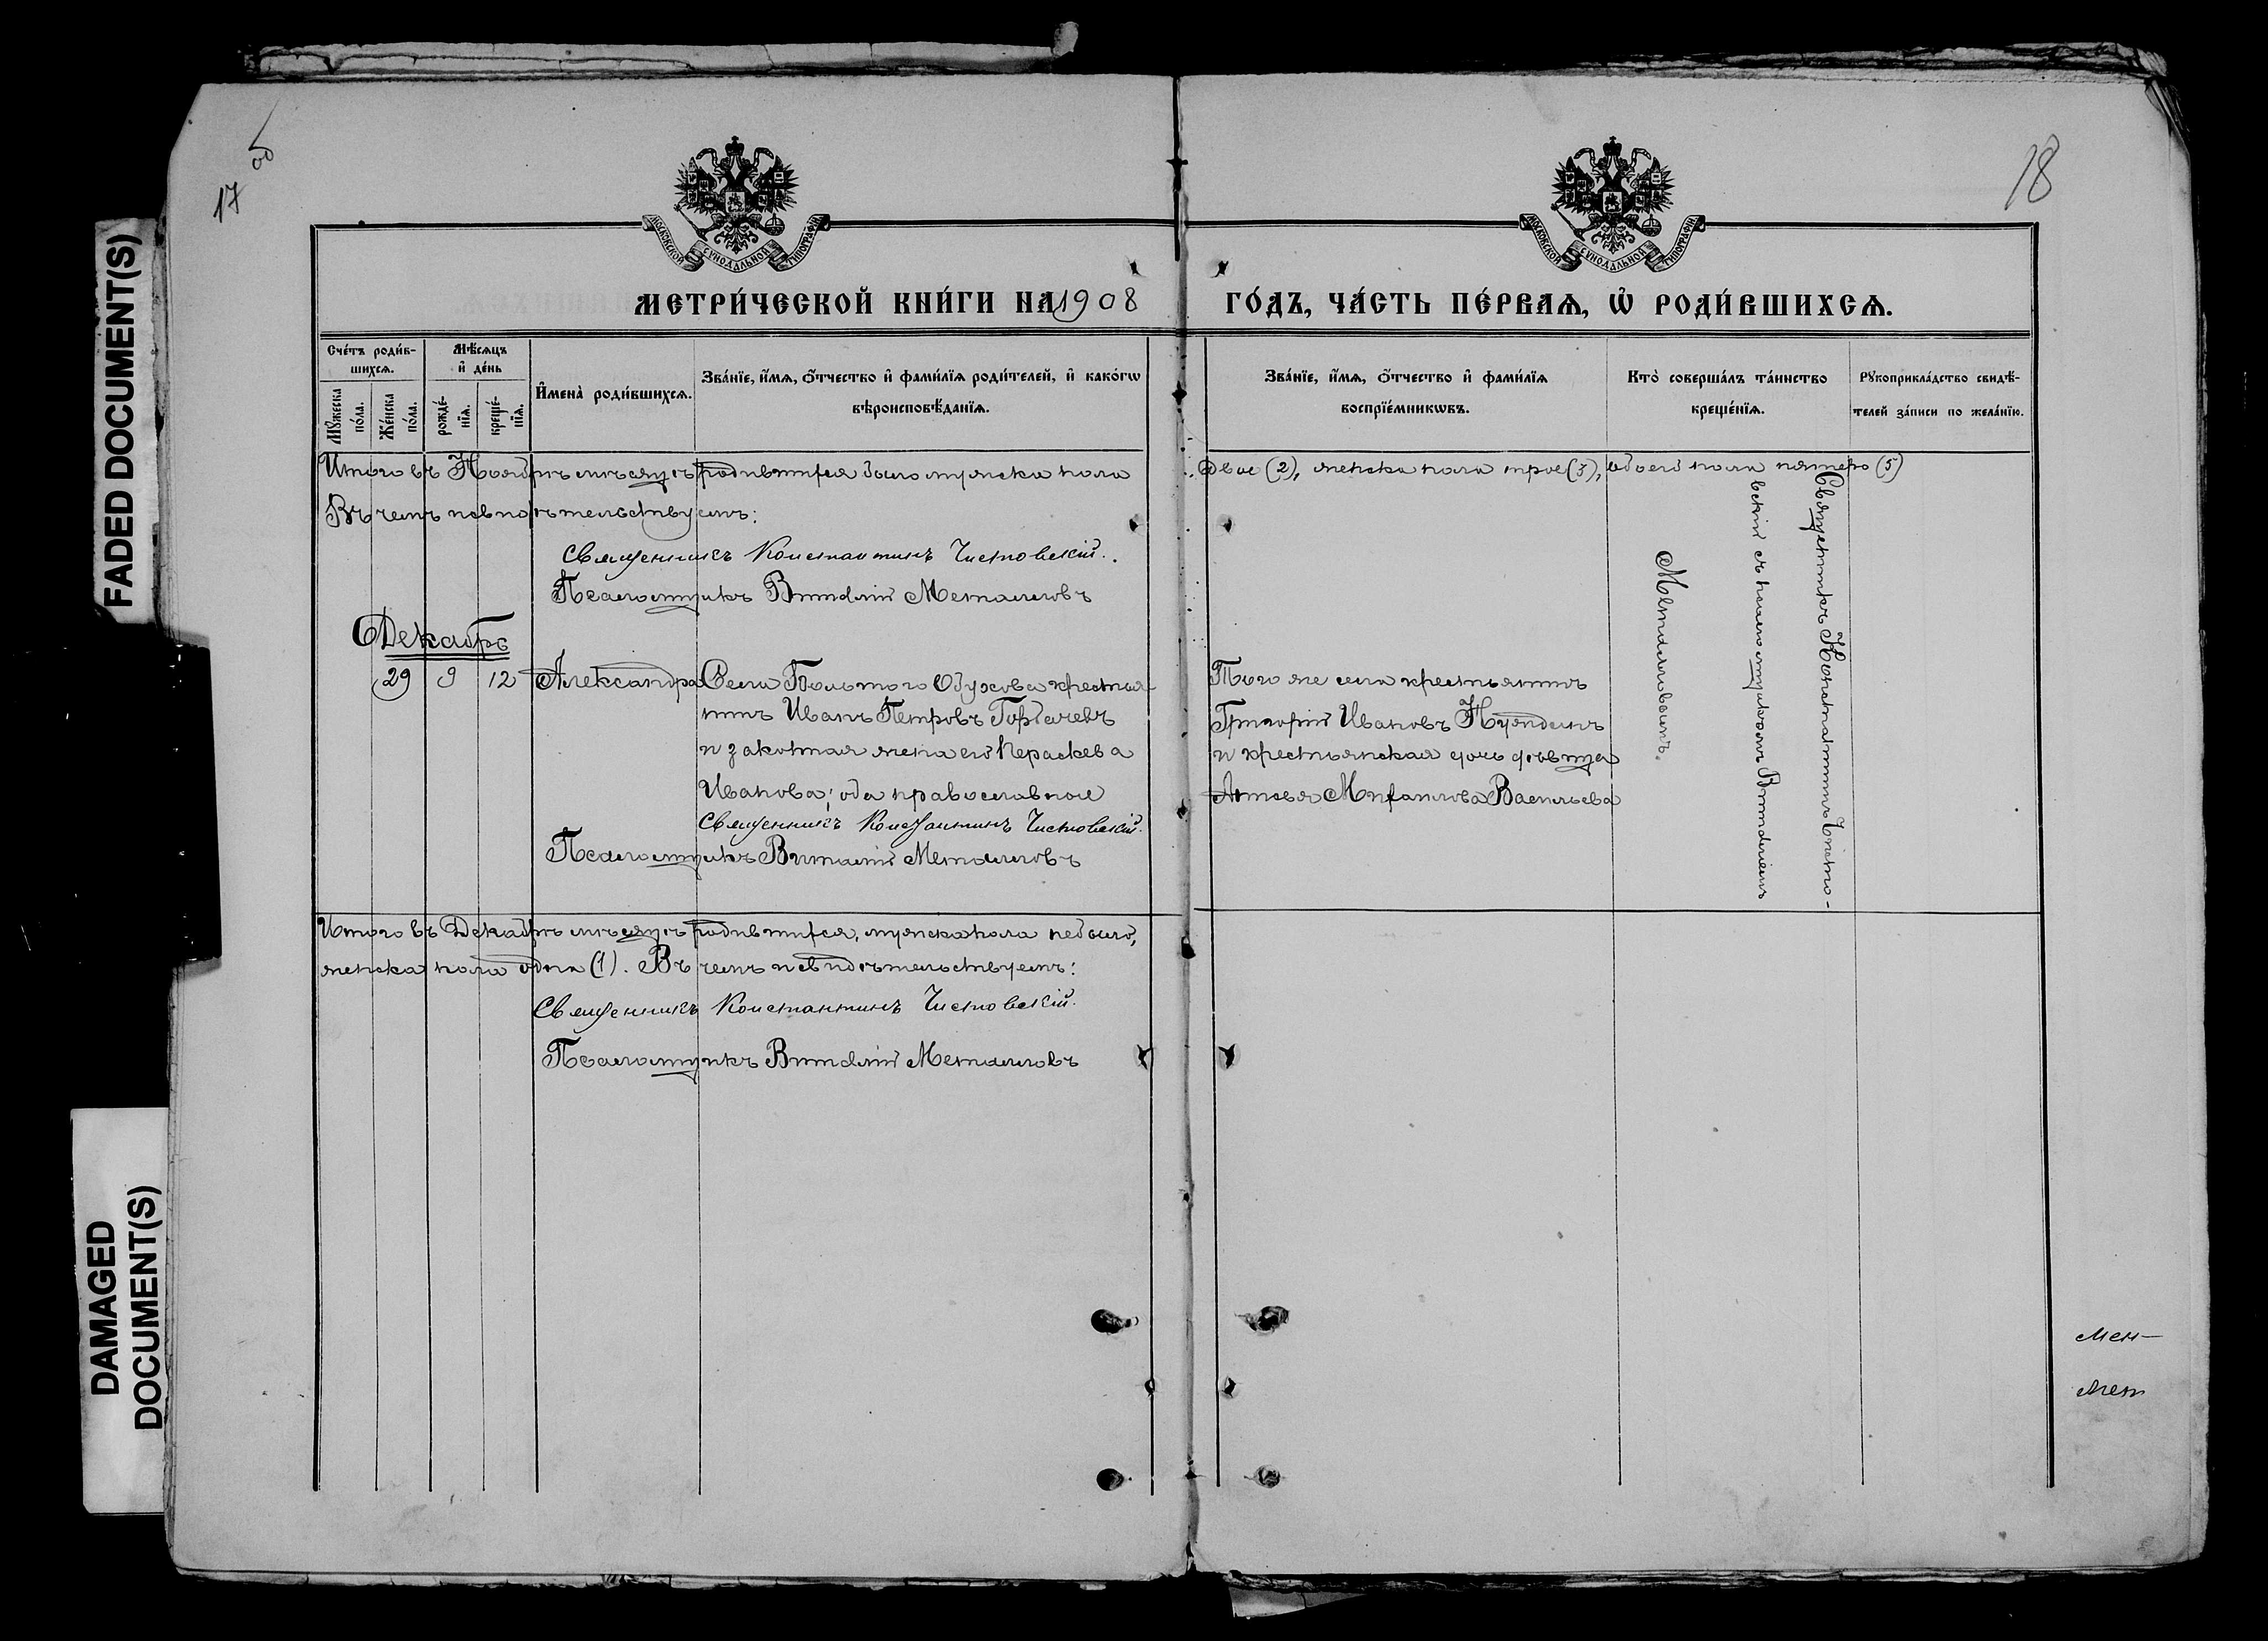 FADED DOCUMENT(S)
DAMAGED
DOCUMENT(S)
17
об
18
МОСКОВСКОЙ СУНОДАЛЬНОЙ ТИПОГРАФІИ
МОСКОВСКОЙ СУНОДАЛЬНОЙ ТИПОГРАФІИ
МЕТРИ́ЧЕСКОЙ КНИ́ГИ НА 1908
ГО́ДЪ, ЧА́СТЬ ПЕ́РВАѦ, Ѡ҆ РОДИ́ВШИХСѦ.
Сче́тъ роди́в-
шихсѧ.
Мѣ́сѧцъ
и҆ де́нь
Мꙋ́жеска
по́ла.
Же́нска
по́ла.
рожде́-
нїѧ.
креще́-
нїѧ.
И҆мена̀ роди́вшихсѧ.
Зва́нїе, и҆́мѧ, ѻ҆́тчество и҆ фами́лїѧ роди́телей, и҆ како́гѡ
вѣроисповѣ́данїѧ.
Зва́нїе, и҆́мѧ, ѻ҆́тчество и҆ фами́лїѧ
воспрїе́мникѡвъ.
Кто̀ соверша́лъ та́инство
креще́нїѧ.
Рꙋкоприкла́дство свидѣ́-
телей за́писи по жела́нїю.
Итого въ Ноябрѣ мѣсяцѣ родившихся было мужска пола
двое (2), женска пола трое (3), обоего пола пятеро (5)
Въ чемъ и свидѣтельствуемъ:
Священникъ Константинъ Чистовскій.
Псаломщикъ Виталій Металловъ
Декабрь
29 9 12 Александра
Села Большого Обухова крестья-
нинъ Иванъ Петровъ Горбачевъ
и законная жена его Параскева
Иванова; оба православные
Священникъ Константинъ Чистовскій.
Псаломщикъ Виталій Металловъ
Того же села крестьянинъ
Григорій Ивановъ Нуждинъ
и крестьянская дочь дѣвица
Михаилова Васильева
Священникъ Константинъ Чистов-
скій съ псаломщикомъ Виталіемъ
Металловымъ.
Итого въ Декабрѣ мѣсяцѣ родившихся, мужска пола не было,
женска пола одна (1). Въ чемъ и свидѣтельствуемъ:
Священникъ Константинъ Чистовскій.
Псаломщикъ Виталій Металловъ